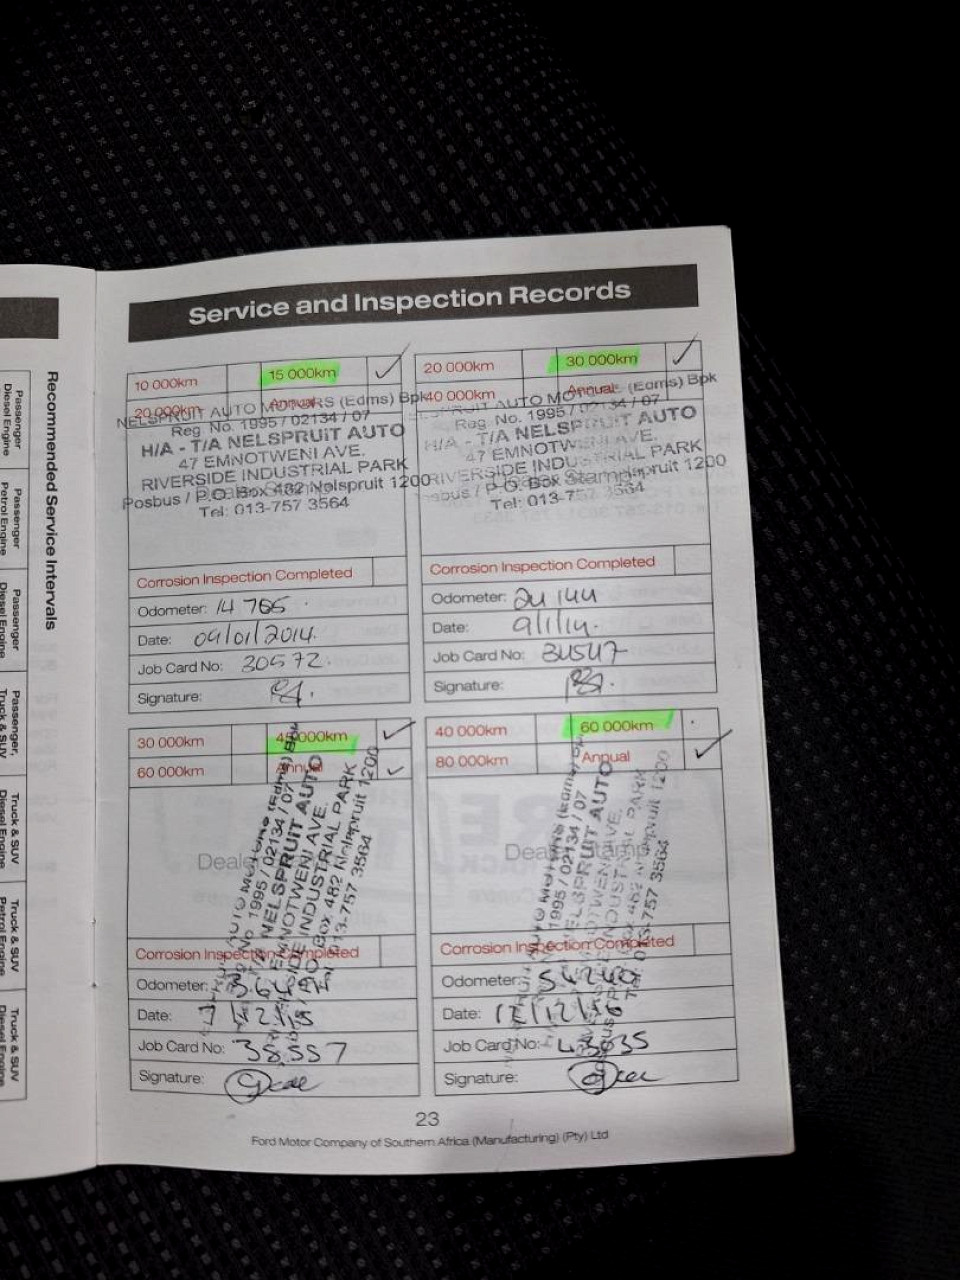 Recommended Service Intervals
Passenger
Diesel Engine
Passenger
Petrol Engine
Passenger
Diesel Engine
Passenger,
Truck & SUV
Truck & SUV
Diesel Engine
Truck & SUV
Petrol Engine
Truck & SUV
Diesel Engine
Service and Inspection Records
10 000km
15 000km
20 000km
Annual
NELSPRUIT AUTO MOTORS (Edms) Bpk
Reg. No. 1995 / 02134 / 07
H/A - T/A NELSPRUiT AUTO
47 EMNOTWENI AVE.
RIVERSIDE INDUSTRIAL PARK
Posbus / P.O. Box 482 Nelspruit 1200
Tel: 013-757 3564
Corrosion Inspection Completed
Odometer: 14 765
Date: 09/01/2014.
Job Card No: 30572.
Signature:
20 000km
30 000km
40 000km
Annual
AUTO MOTORS (Edms) Bpk
Reg. No. 1995 / 02134 / 07
H/A - T/A NELSPRUIT AUTO
47 EMNOTWENI AVE.
RIVERSIDE INDUSTRIAL PARK
Posbus / P.O. Box Nelspruit 1200
Dealer Stamp
Tel: 013-757 3564
Corrosion Inspection Completed
Odometer: 24 144
Date: 9/1/14.
Job Card No: 34547
Signature:
30 000km
45 000km
60 000km
Annual
Dealer
Auto Motors (Edms) Bpk
No 1995 / 02134 / 07
T/A NELSPRUIT AUTO
EMNOTWENI AVE.
INDUSTRIAL PARK
Box 482 Nelspruit 1200
013-757 3564
Corrosion Inspection Completed
Odometer:
Date:
Job Card No: 38357
Signature:
40 000km
60 000km
80 000km
Annual
Dealer Stamp
Auto Motors (Edms) Bpk
1995 / 02134 / 07
NELSPRUIT AUTO
EMNOTWENI AVE.
INDUSTRIAL PARK
Box 482 Nelspruit 1200
Tel: 013-757 3564
Corrosion Inspection Completed
Odometer:
Date:
Job Card No: 43635
Signature:
23
Ford Motor Company of Southern Africa (Manufacturing) (Pty) Ltd